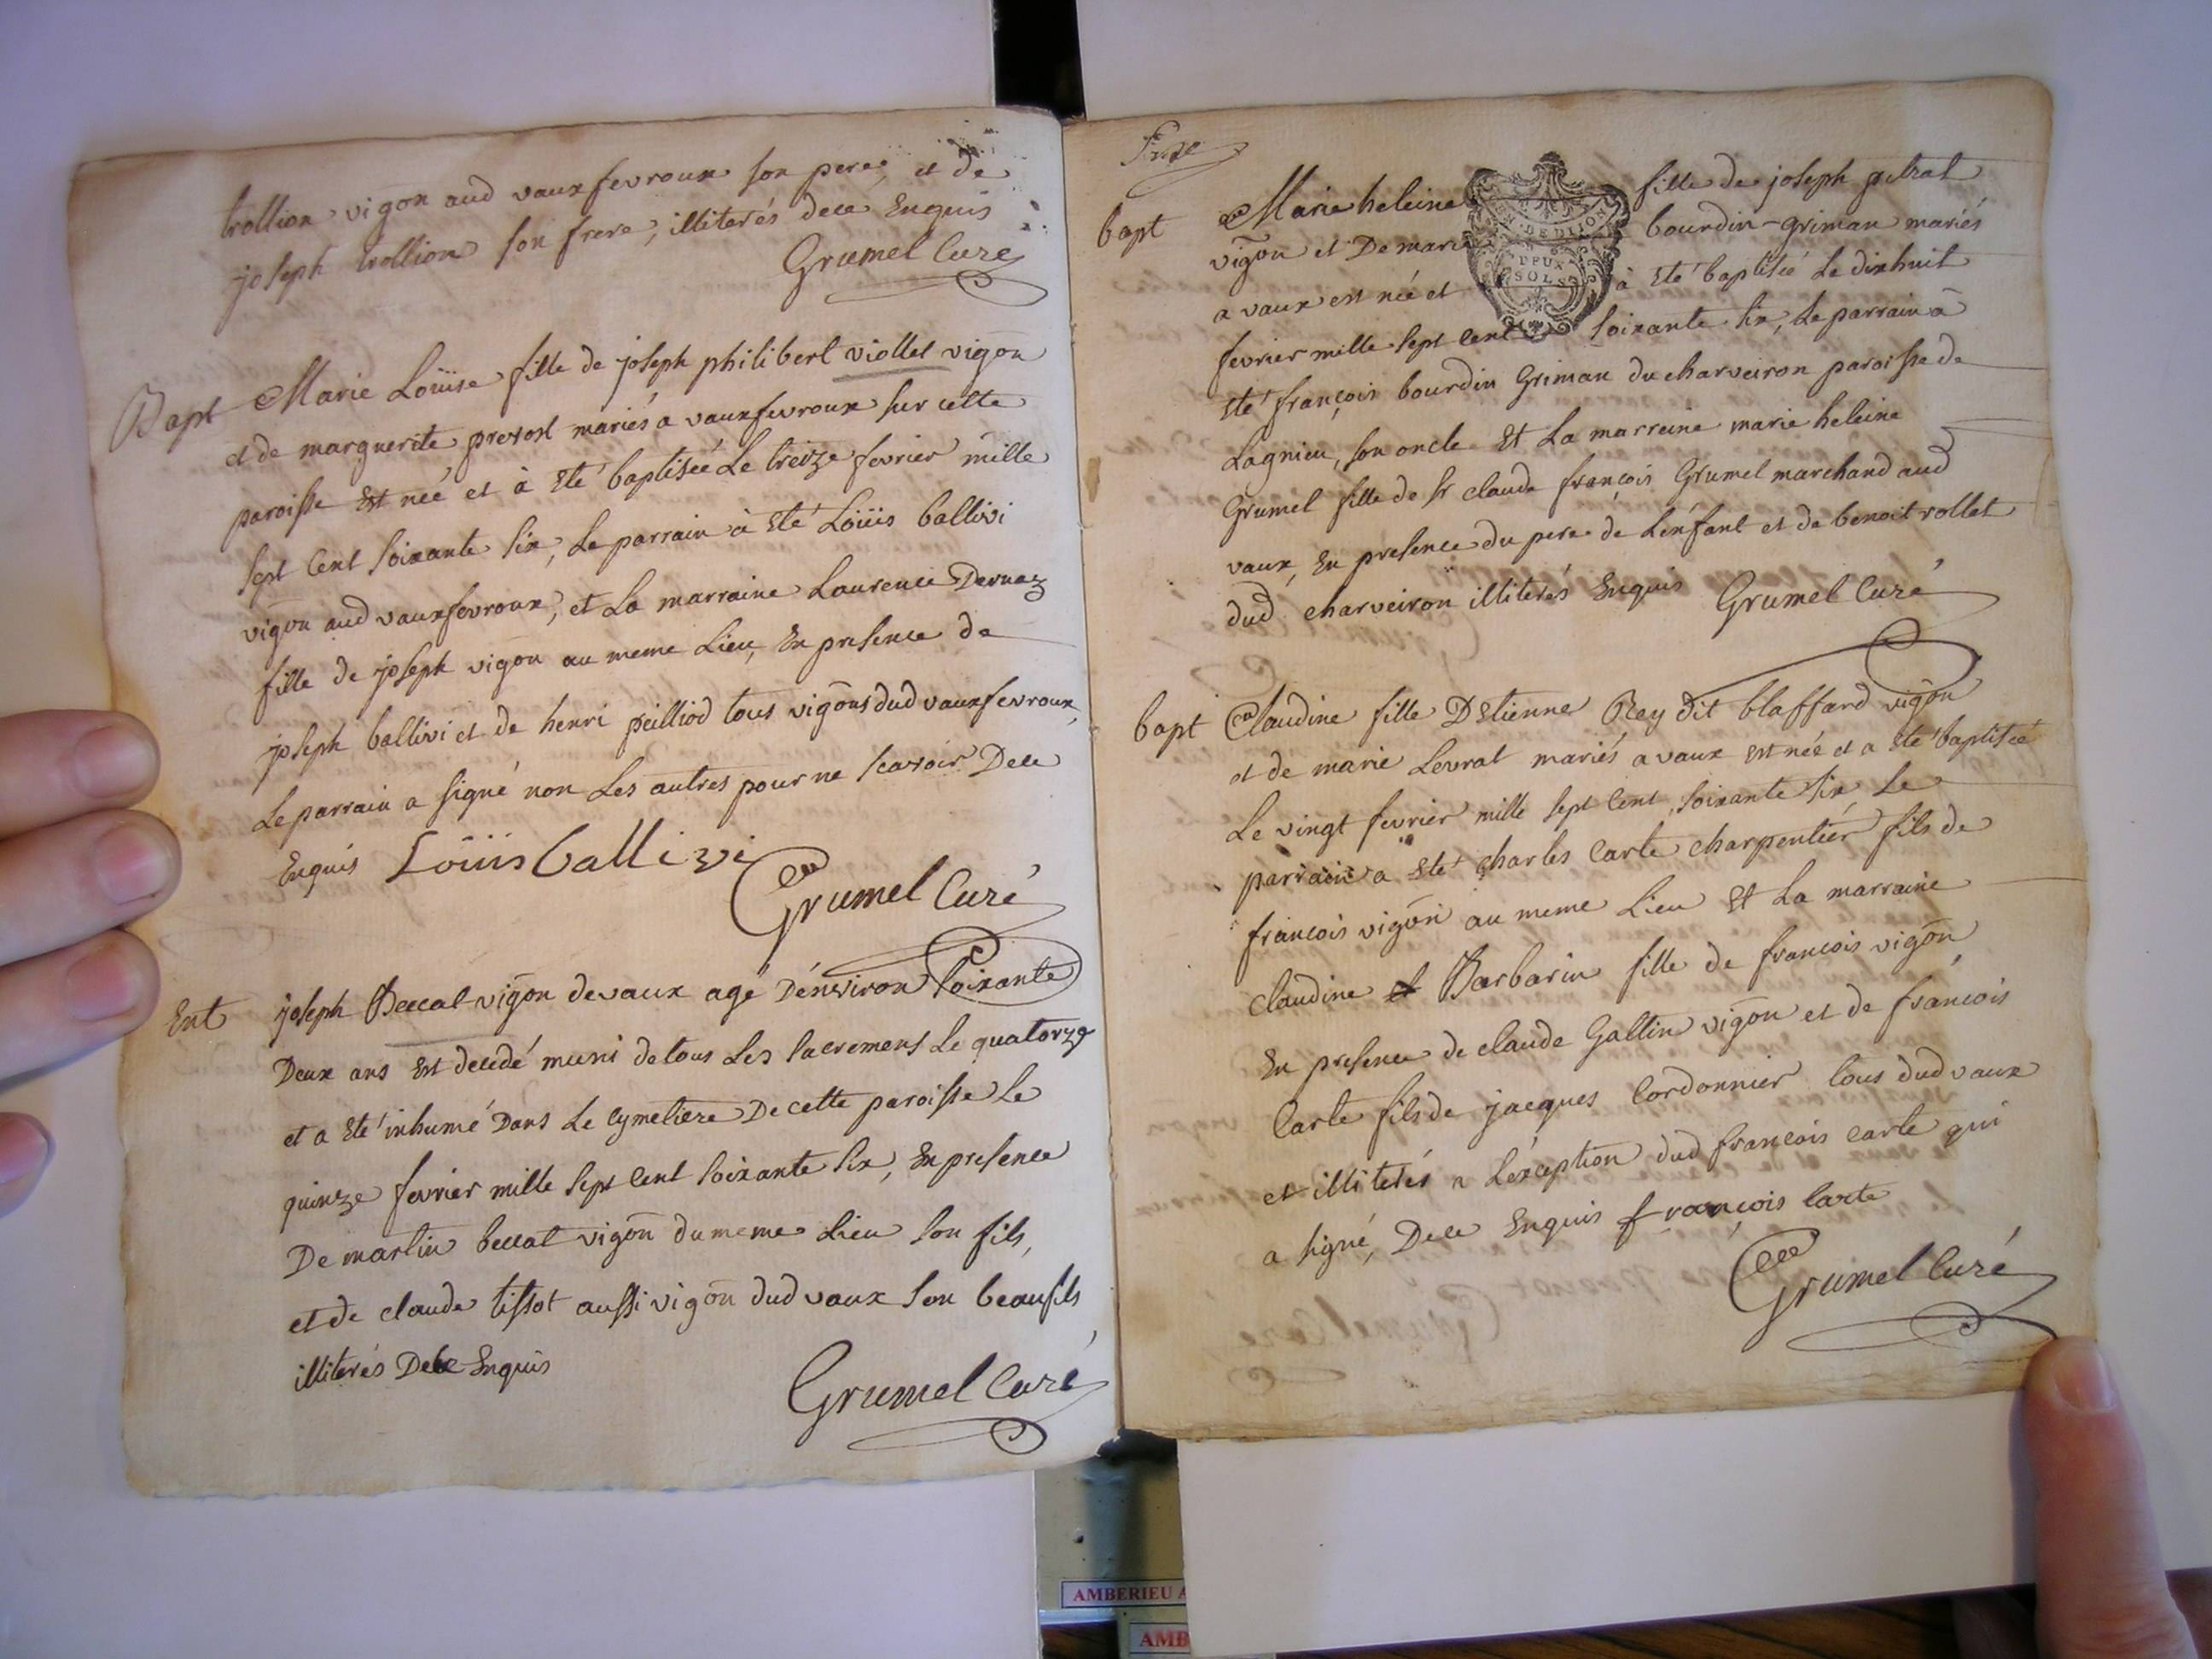 trollion vigon aud vauxfevroux son pere, et de
joseph trollion son frere, illiterés de ce Enquis
Grumel Curé
Bapt Marie Loüise fille de joseph philibert viollet vigon
et de marguerite prevost mariés a vauxfevroux sur cette
paroisse Est née et à Eté baptisée Le treize fevrier mille
sept Cent soixante six, Le parrain à Eté Loüis ballivi
vigon aud vauxfevroux, et La marraine Laurence Dernaz
fille de joseph vigon au meme Lieu, En presence de
joseph ballivi et de henri peilliod tous vigons dud vauxfevroux,
Le parrain a signé non Les autres pour ne scavoir De ce
Enquis Loüis ballivi
Grumel Curé
Ent joseph Beccat vigon de vaux agé D'énviron soixante
Deux ans Est decedé muni de tous Les sacremens Le quatorze
et a Eté inhumé Dans Le Cymetiere De cette paroisse Le
quinze fevrier mille sept Cent soixante six, En presence
De martin beccat vigon du meme Lieu son fils,
et de claude tissot aussi vigon dud vaux son beaufils
illiterés De ce Enquis
Grumel Curé
bapt Marie heleine fille de joseph petrat
vigon et De marie bourdin-griman mariés
a vaux est née et à Eté baptisée Le dixhuit
fevrier mille sept cent soixante six, Le parrain à
Eté françois bourdin Griman du charveiron paroisse de
Lagnieu, son oncle Et La marreine marie heleine
Grumel fille de sr claude françois Grumel marchand aud
vaux, En presence du pere de L'enfant et de benoit rollet
dud charveiron illiterés Enquis Grumel Curé
EN. DE DIJON
DEUX
SOLS
bapt Claudine fille D'Etienne Rey dit blaffard vigon
et de marie Levrat mariés a vaux est née et a Eté baptisée
Le vingt fevrier mille sept Cent soixante six Le
parrain a Eté charles Carte charpentier fils de
francois vigon au meme Lieu Et La marraine
claudine Barbarin fille de francois vigon,
En presence de claude Gallin vigon et de francois
Carte fils de jacques Cordonnier tous dud vaux
et illiterés a L'exception dud francois carte qui
a signé, De ce Enquis françois Carte
Grumel Curé
AMBERIEU A
AMB